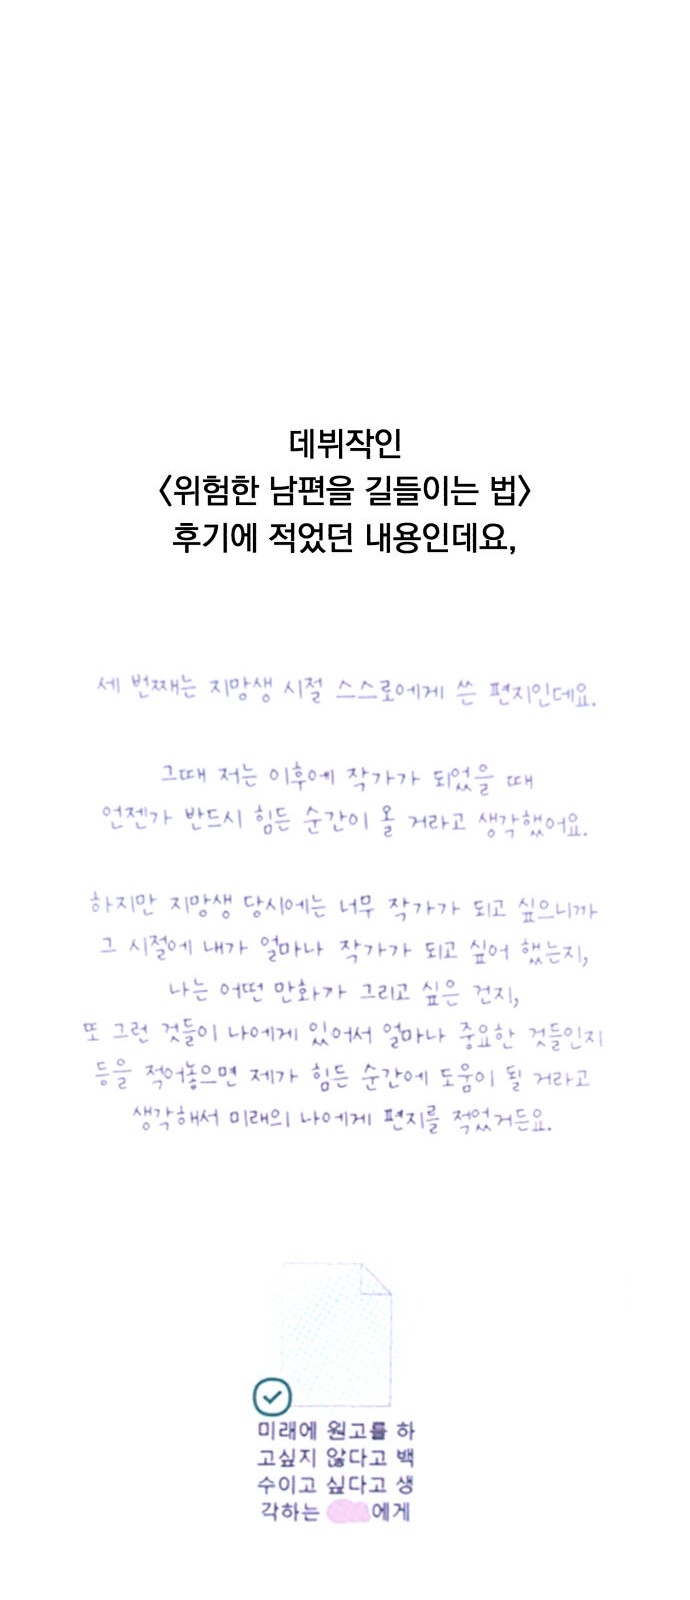 데뷔작인
<위험한 남편을 길들이는 법>
후기에 적었던 내용인데요,
세 번째는 지망생 시절 스스로에게 쓴 편지인데요.
그때 저는 이후에 작가가 되었을 때
언젠가 반드시 힘든 순간이 올 거라고 생각했어요.
하지만 지망생 당시에는 너무 작가가 되고 싶으니까
그 시절에 내가 얼마나 작가가 되고 싶어 했는지,
나는 어떤 만화가 그리고 싶은 건지,
또 그런 것들이 나에게 있어서 얼마나 중요한 것들인지
등을 적어놓으면 제가 힘든 순간에 도움이 될 거라고
생각해서 미래의 나에게 편지를 적었거든요.
미래에 원고를 하
고싶지 않다고 백
수이고 싶다고 생
각하는 에게